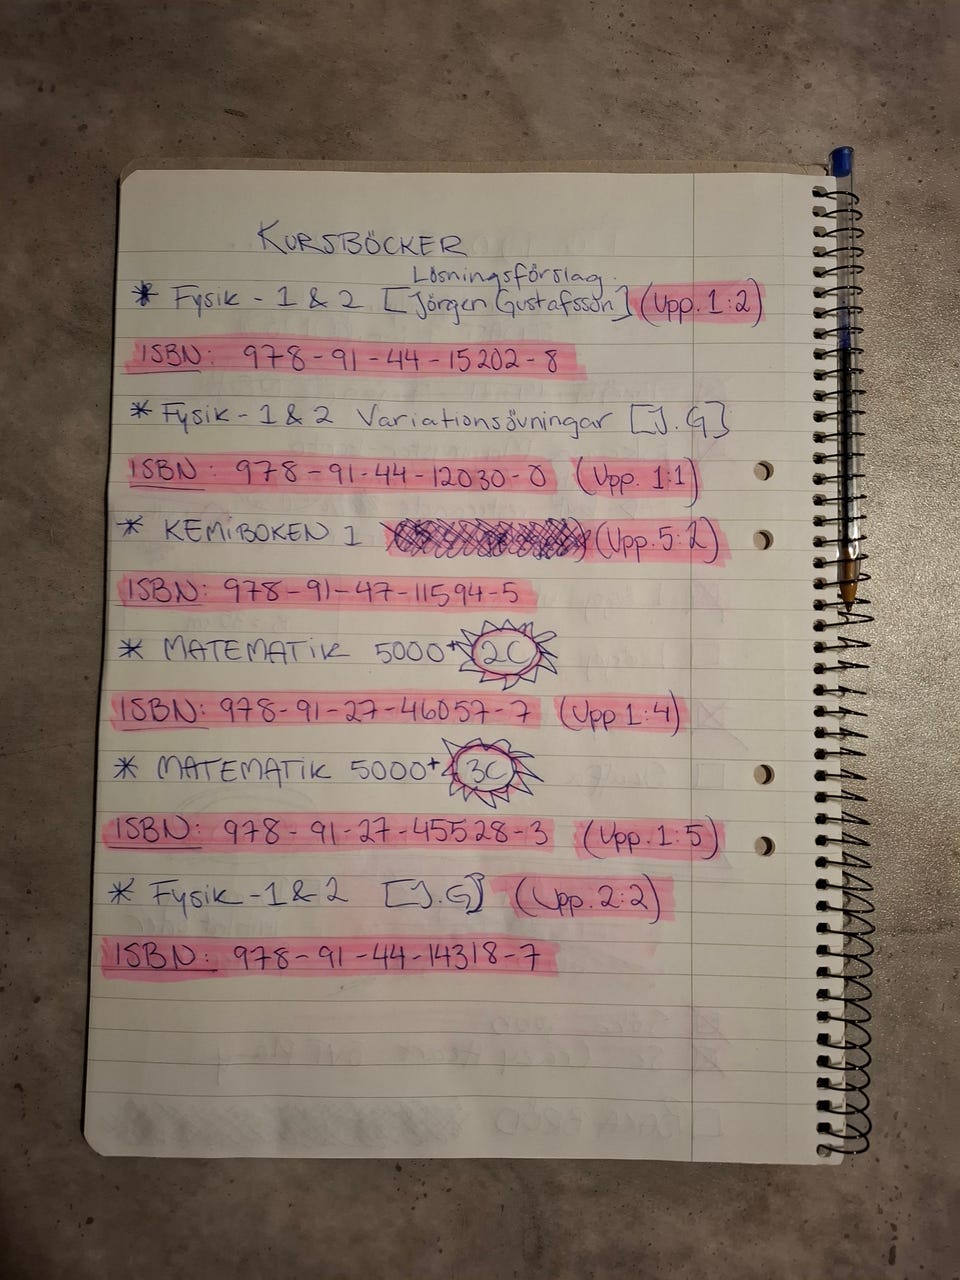 KURSBÖCKER
Lösningsförslag
* Fysik - 1 & 2 [Jörgen Gustafsson] (Upp. 1:2)
ISBN: 978-91-44-15202-8
* Fysik - 1 & 2 Variationsövningar [J.G]
ISBN: 978-91-44-12030-0 (Upp. 1:1)
* KEMIBOKEN 1 (Upp. 5:2)
ISBN: 978-91-47-11594-5
* MATEMATIK 5000+ 2C
ISBN: 978-91-27-46057-7 (Upp 1:4)
* MATEMATIK 5000+ 3C
ISBN: 978-91-27-45528-3 (Upp. 1:5)
* Fysik - 1 & 2 [J.G] (Upp. 2:2)
ISBN: 978-91-44-14318-7